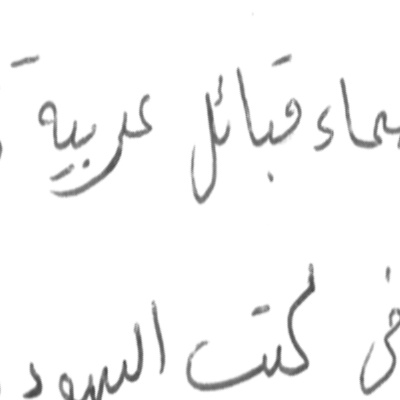 سماء قبائل عربية
في كتب السود